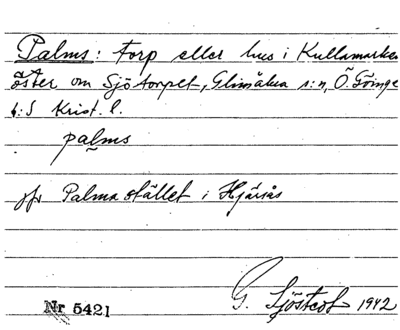 Palms: Torp eller hus i Kullamarken
öster om Sjötorpet, Glimåkra s:n, Ö. Göinge
h:d Krist. l.
palms
jfr Palmastället i Hjärsås
G. Sjöstedt 1942
Nr 5421